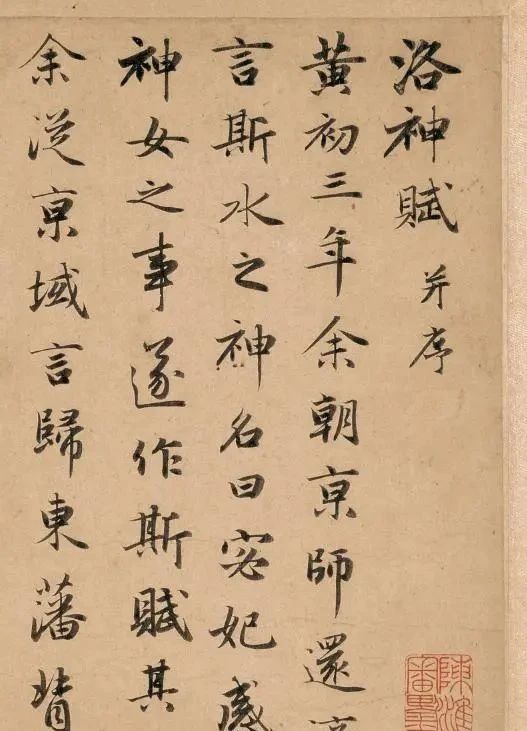 洛神賦 并序
黃初三年余朝京師還
言斯水之神名曰宓妃感
神女之事遂作斯賦其
余從京域言歸東藩背